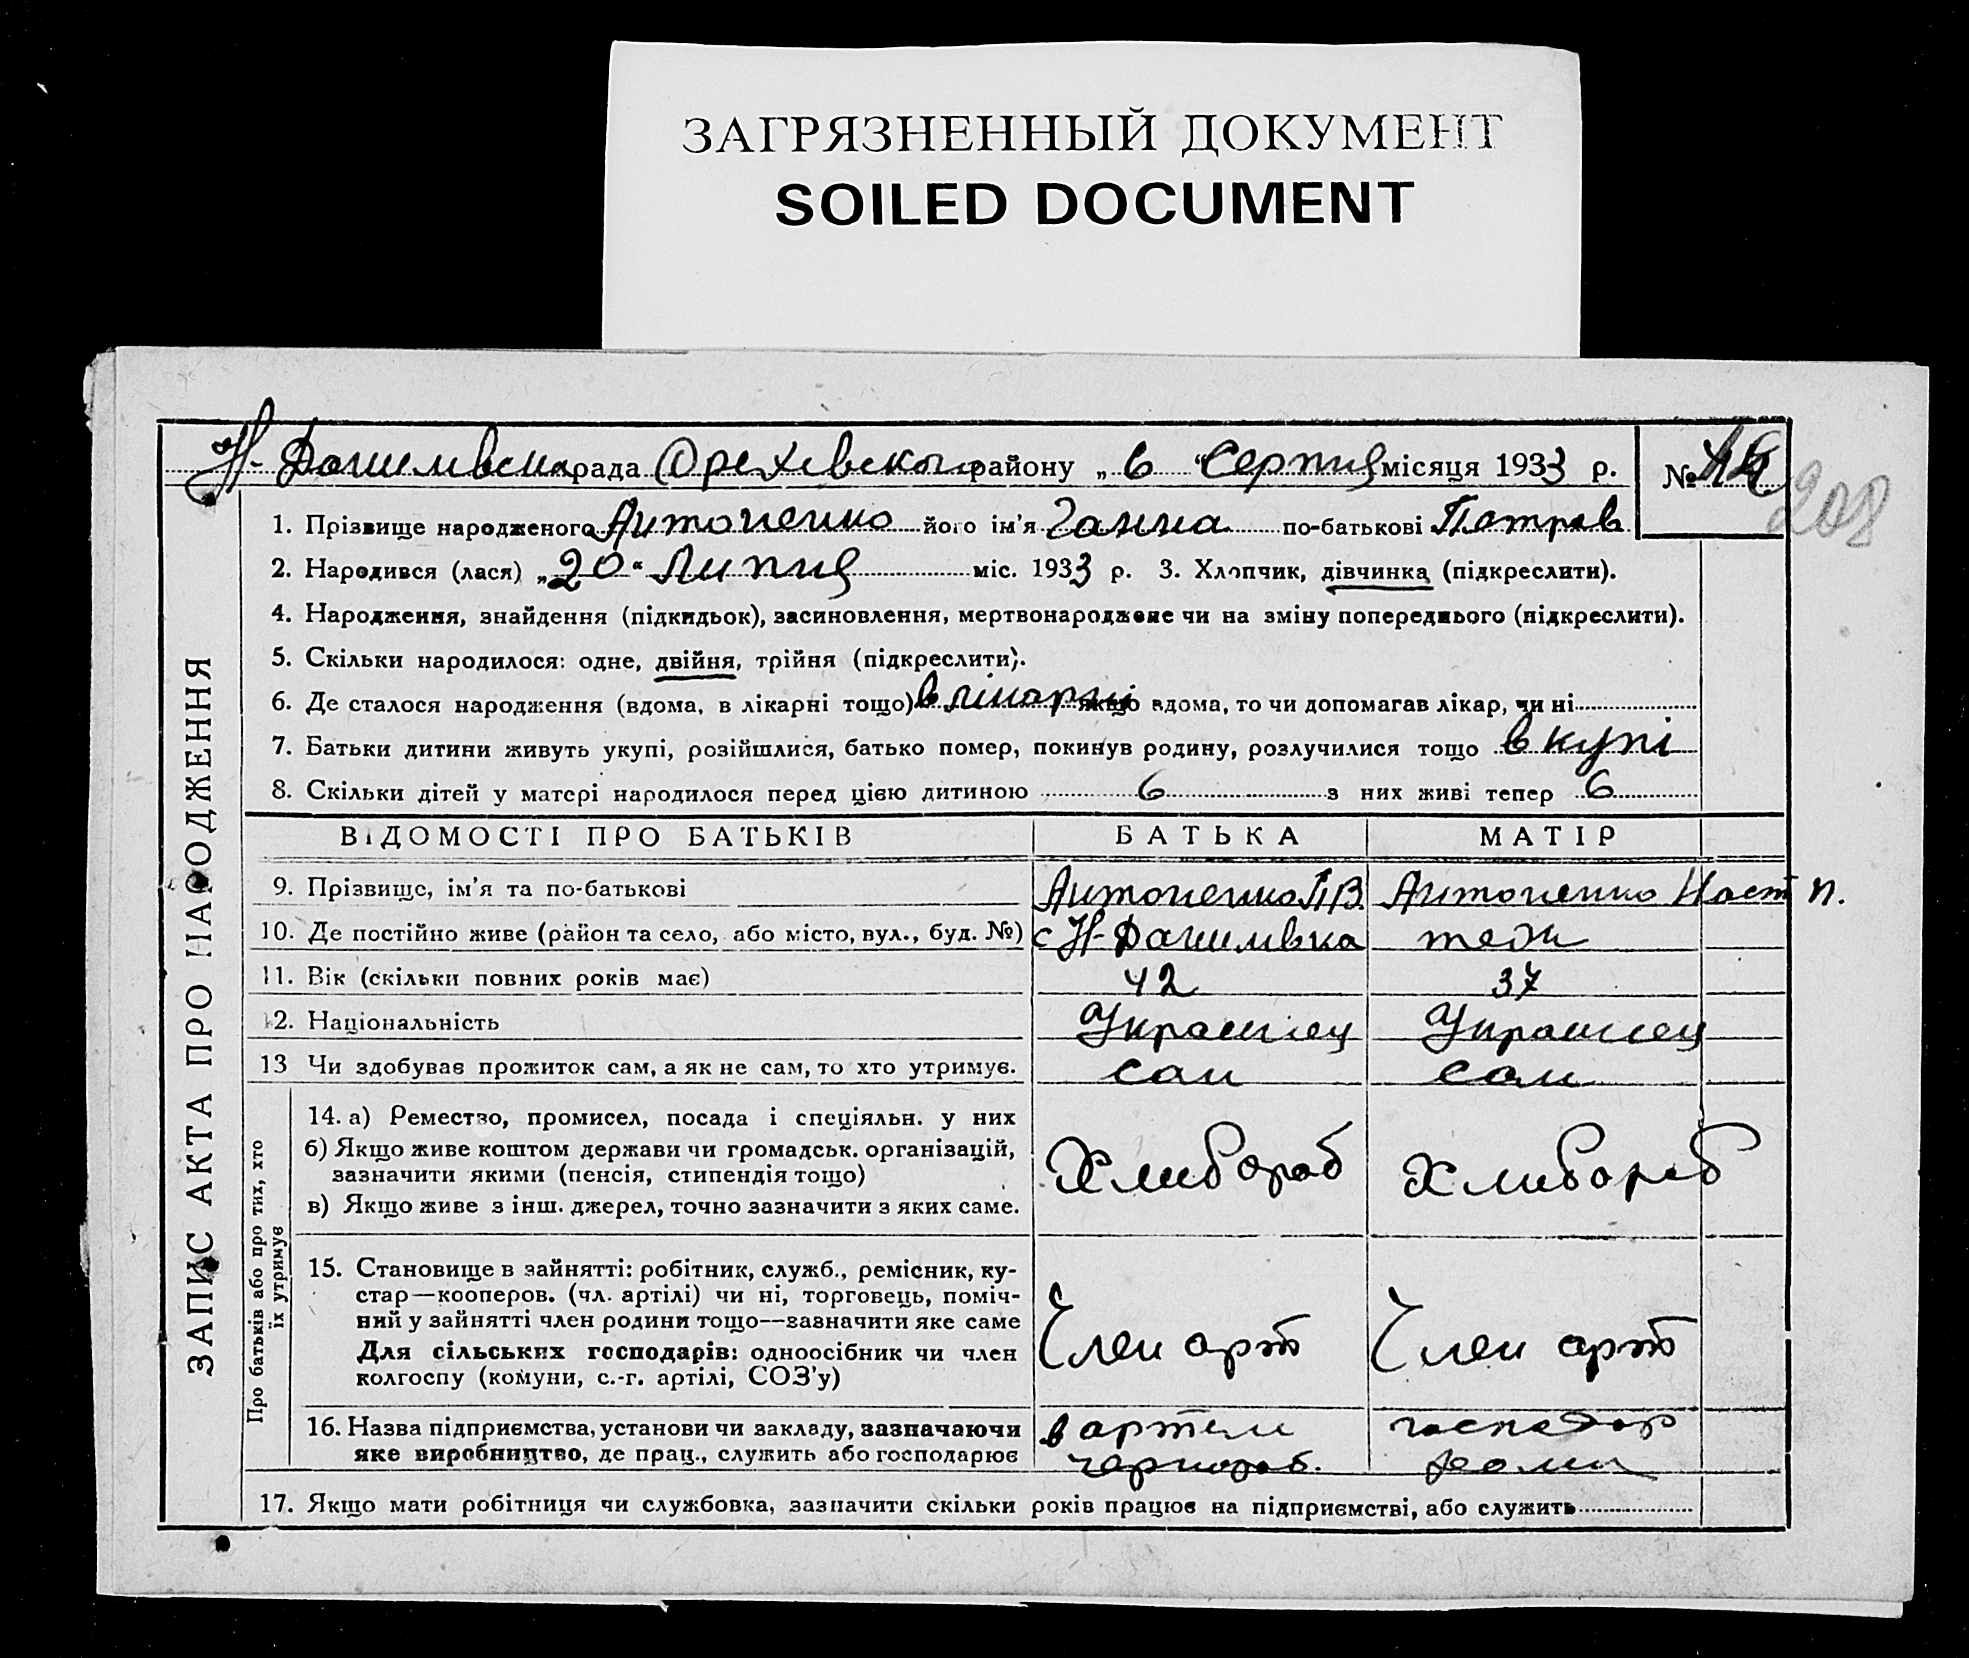 ЗАГРЯЗНЕННЫЙ ДОКУМЕНТ
SOILED DOCUMENT
рада Орехевского району „ 6 “ Серпня місяця 1933 р. №
208
1. Прізвище народженого Антоненко його ім'я Ганна по-батькові Петров
2. Народився (лася) „20“ Липня міс. 1933 р. 3. Хлопчик, дівчинка (підкреслити).
4. Народження, знайдення (підкидьок), засиновлення, мертвонароджене чи на зміну попереднього (підкреслити).
5. Скільки народилося: одне, двійня, трійня (підкреслити).
6. Де сталося народження (вдома, в лікарні тощо) в лікарні якщо вдома, то чи допомагав лікар, чи ні
7. Батьки дитини живуть укупі, розійшлися, батько помер, покинув родину, розлучилися тощо вкупі
8. Скільки дітей у матері народилося перед цією дитиною 6 з них живі тепер 6
ЗАПИС АКТА ПРО НАРОДЖЕННЯ
ВІДОМОСТІ ПРО БАТЬКІВ БАТЬКА МАТІР
9. Прізвище, ім'я та по-батькові Антоненко П В. Антоненко Наст п.
10. Де постійно живе (район та село, або місто, вул., буд. №) с Н- теж
11. Вік (скільки повних років має) 42 37
12. Національність Украинец Украинец
13 Чи здобуває прожиток сам, а як не сам, то хто утримує. сам сам
Про батьків або про тих, хто
їх утримує
14. а) Ремество, промисел, посада і спеціяльн. у них
б) Якщо живе коштом держави чи громадськ. організацій,
зазначити якими (пенсія, стипендія тощо)
в) Якщо живе з інш. джерел, точно зазначити з яких саме.
Хлибороб Хлибороб
15. Становище в зайнятті: робітник, служб., ремісник, ку-
стар—кооперов. (чл. артілі) чи ні, торговець, поміч-
ний у зайнятті член родини тощо—зазначити яке саме
Для сільських господарів: одноосібник чи член
колгоспу (комуни, с.-г. артілі, СОЗ'у)
Член арт Член арт
16. Назва підприємства, установи чи закладу, зазначаючи в артели господар
яке виробництво, де прац., служить або господарює чорнороб.
17. Якщо мати робітниця чи службовка, зазначити скільки років працює на підприємстві, або служить